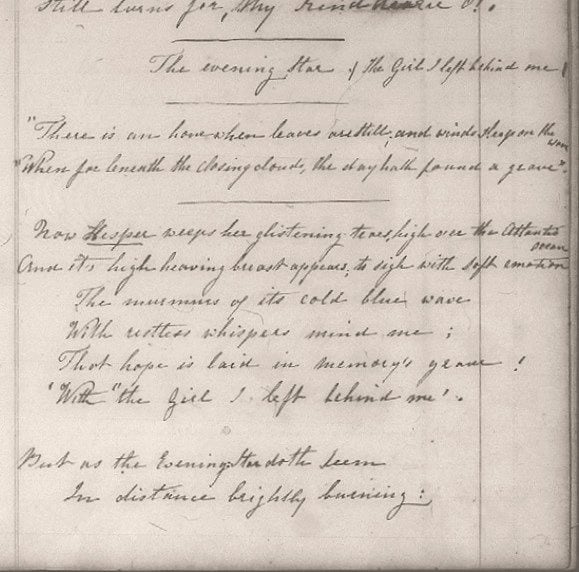 Still turns for, thy kind
The evening Star | (The Girl I left behind me)
"There is an hour when leaves are still, and winds sleep on the wave
"When far beneath the closing clouds, the day hath found a grave".
Now Hesper weeps her glistening tears, high over the Atlantic ocean
And it's high heaving breast appears, to sigh with soft emotion
The murmurs of its cold blue wave
With restless whispers mind me;
That hope is laid in memory's grave!
'With "the Girl I left behind me'.
But as the Evening Star doth seem
In distance brightly burning: